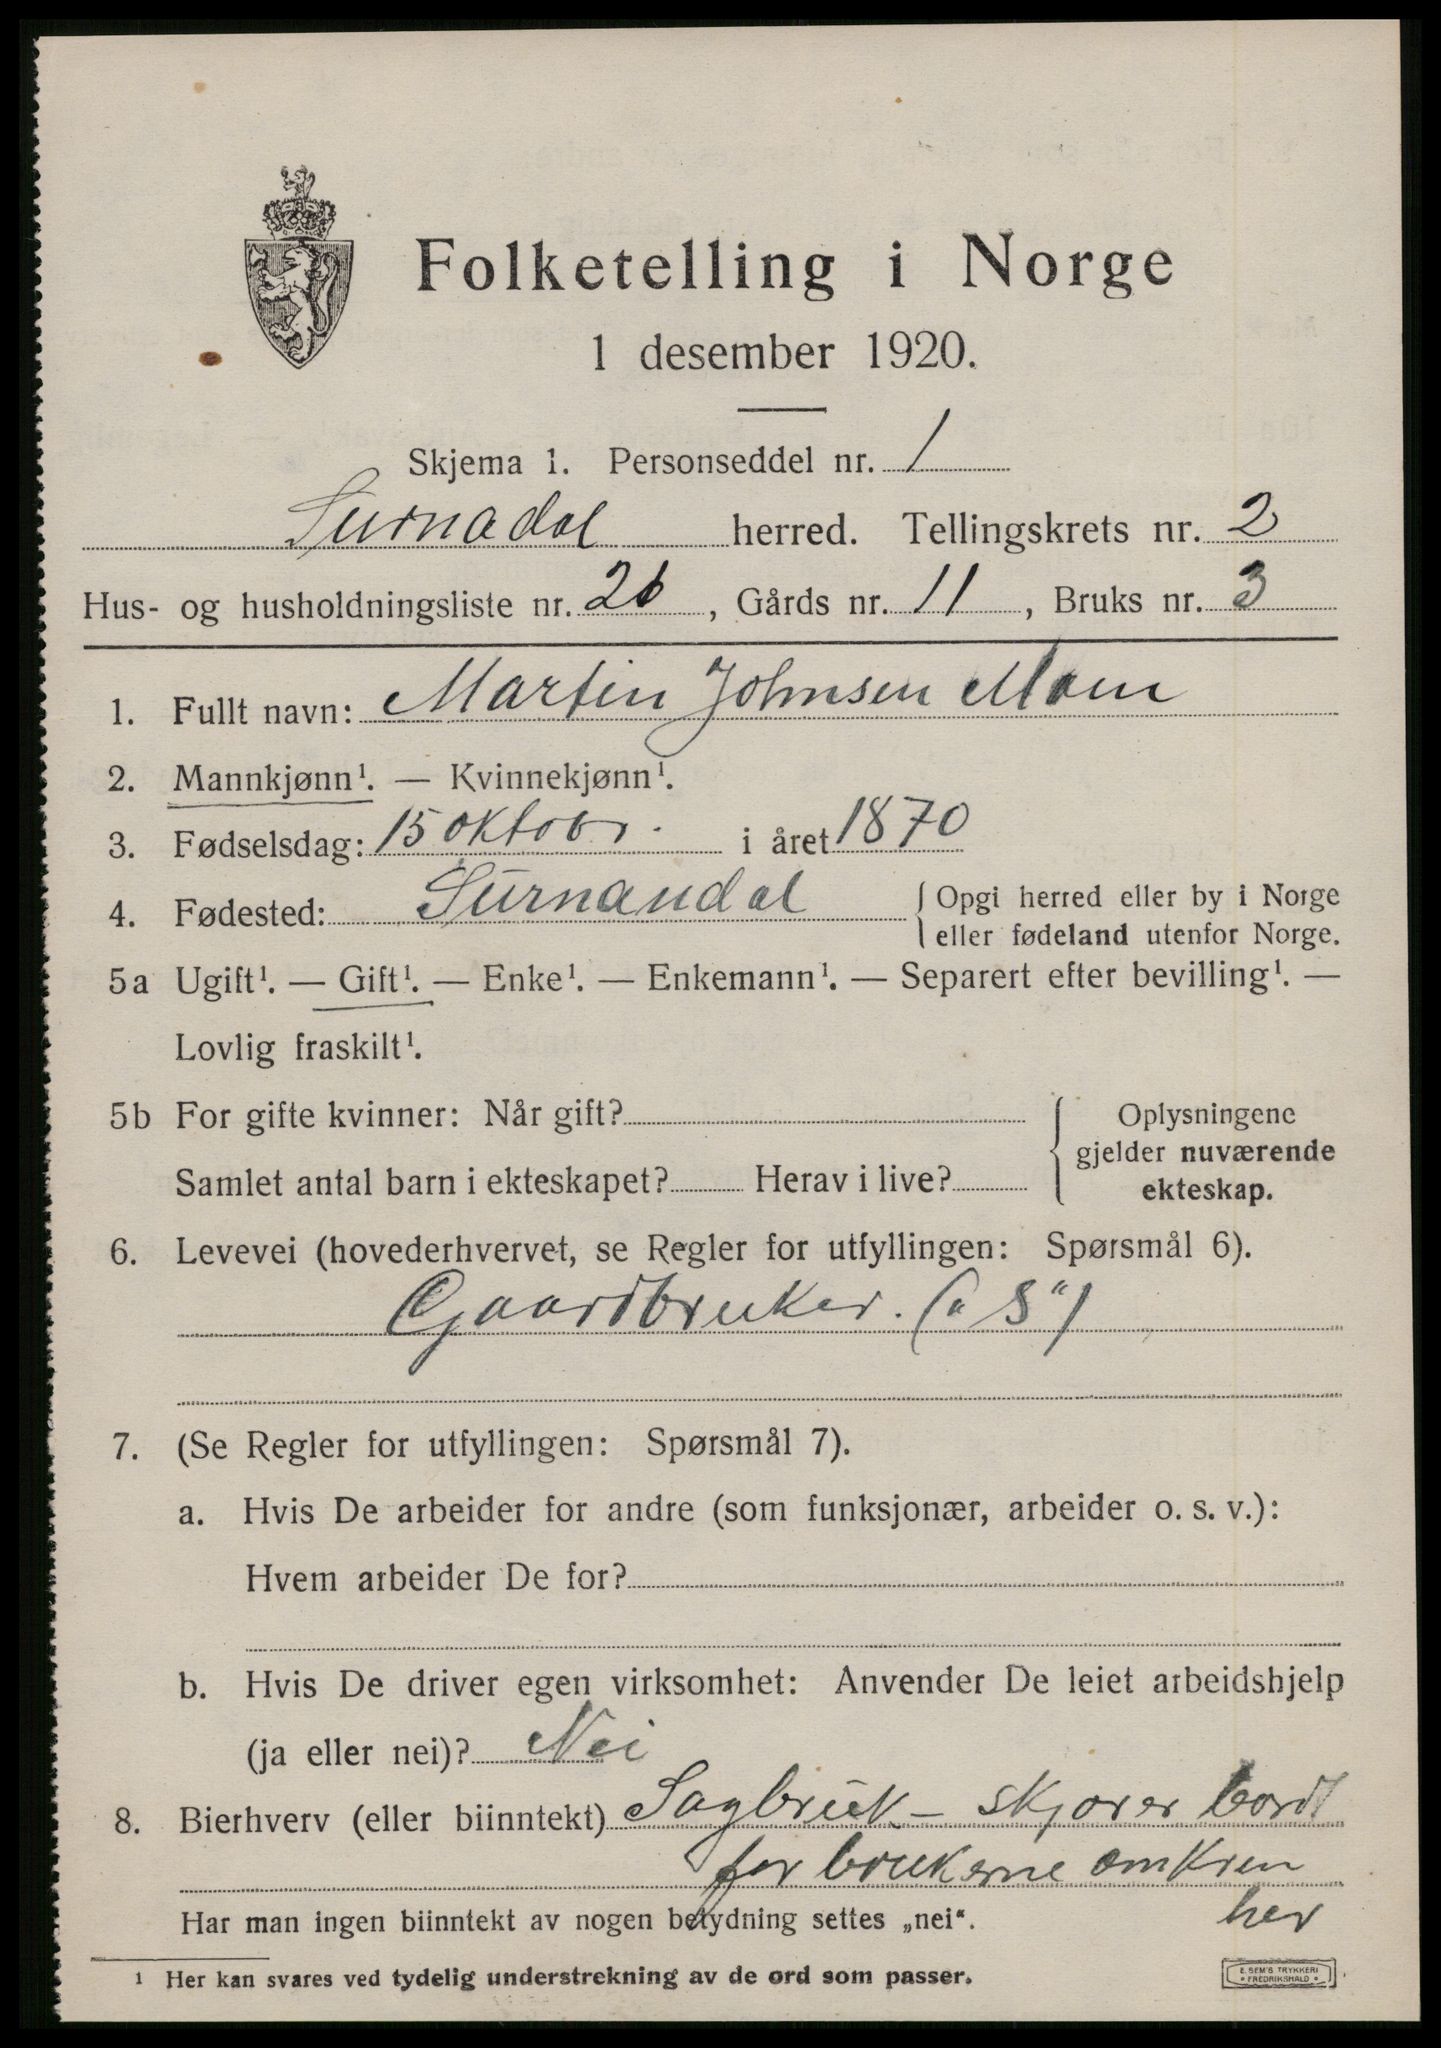 Folketelling i Norge
1 desember 1920.
Skjema 1. Personseddel nr. 1
Surnadal herred. Tellingskrets nr. 2
Hus- og husholdningsliste nr. 26, Gårds nr. 11, Bruks nr. 3
1. Fullt navn: Martin Johnsen Moen
2. Mannkjønn¹. — Kvinnekjønn¹.
3. Fødselsdag: 15 oktobr. i året 1870
4. Fødested: Surnandal {Opgi herred eller by i Norge
eller fødeland utenfor Norge.
5a Ugift¹. — Gift¹. — Enke¹. — Enkemann¹. — Separert efter bevilling¹. —
Lovlig fraskilt¹.
5b For gifte kvinner: Når gift?
Samlet antal barn i ekteskapet? Herav i live?
{Oplysningene
gjelder nuværende
ekteskap.
6. Levevei (hovederhvervet, se Regler for utfyllingen: Spørsmål 6).
Gaardbruker. („S“)
7. (Se Regler for utfyllingen: Spørsmål 7).
a. Hvis De arbeider for andre (som funksjonær, arbeider o. s. v.):
Hvem arbeider De for?
b. Hvis De driver egen virksomhet: Anvender De leiet arbeidshjelp
(ja eller nei)? Nei
8. Bierhverv (eller biinntekt) Sagbruk – skjærer bord
for brukerne omkren
her
Har man ingen biinntekt av nogen betydning settes „nei“.
¹ Her kan svares ved tydelig understrekning av de ord som passer.
E. SEM'S TRYKKERI
• FREDRIKSHALD •